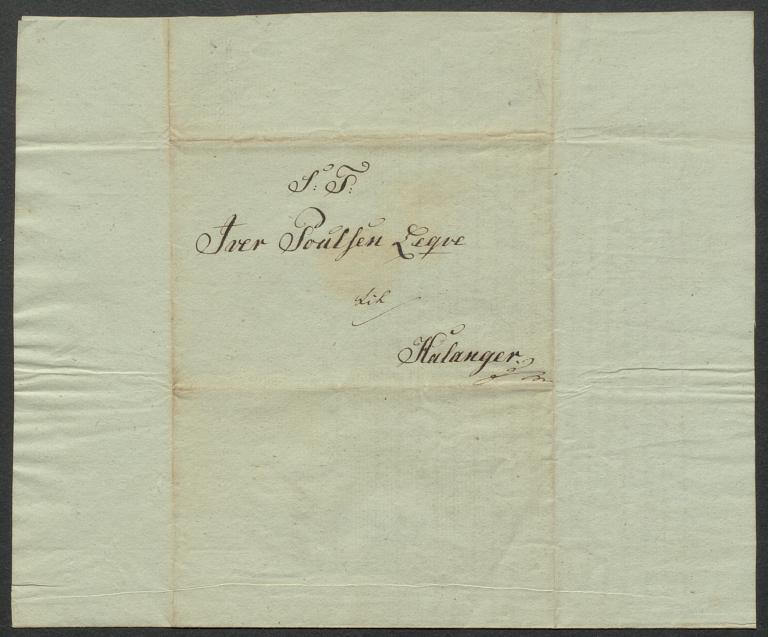 S: T:
Iver Poulsen Leqve
till
Hulanger